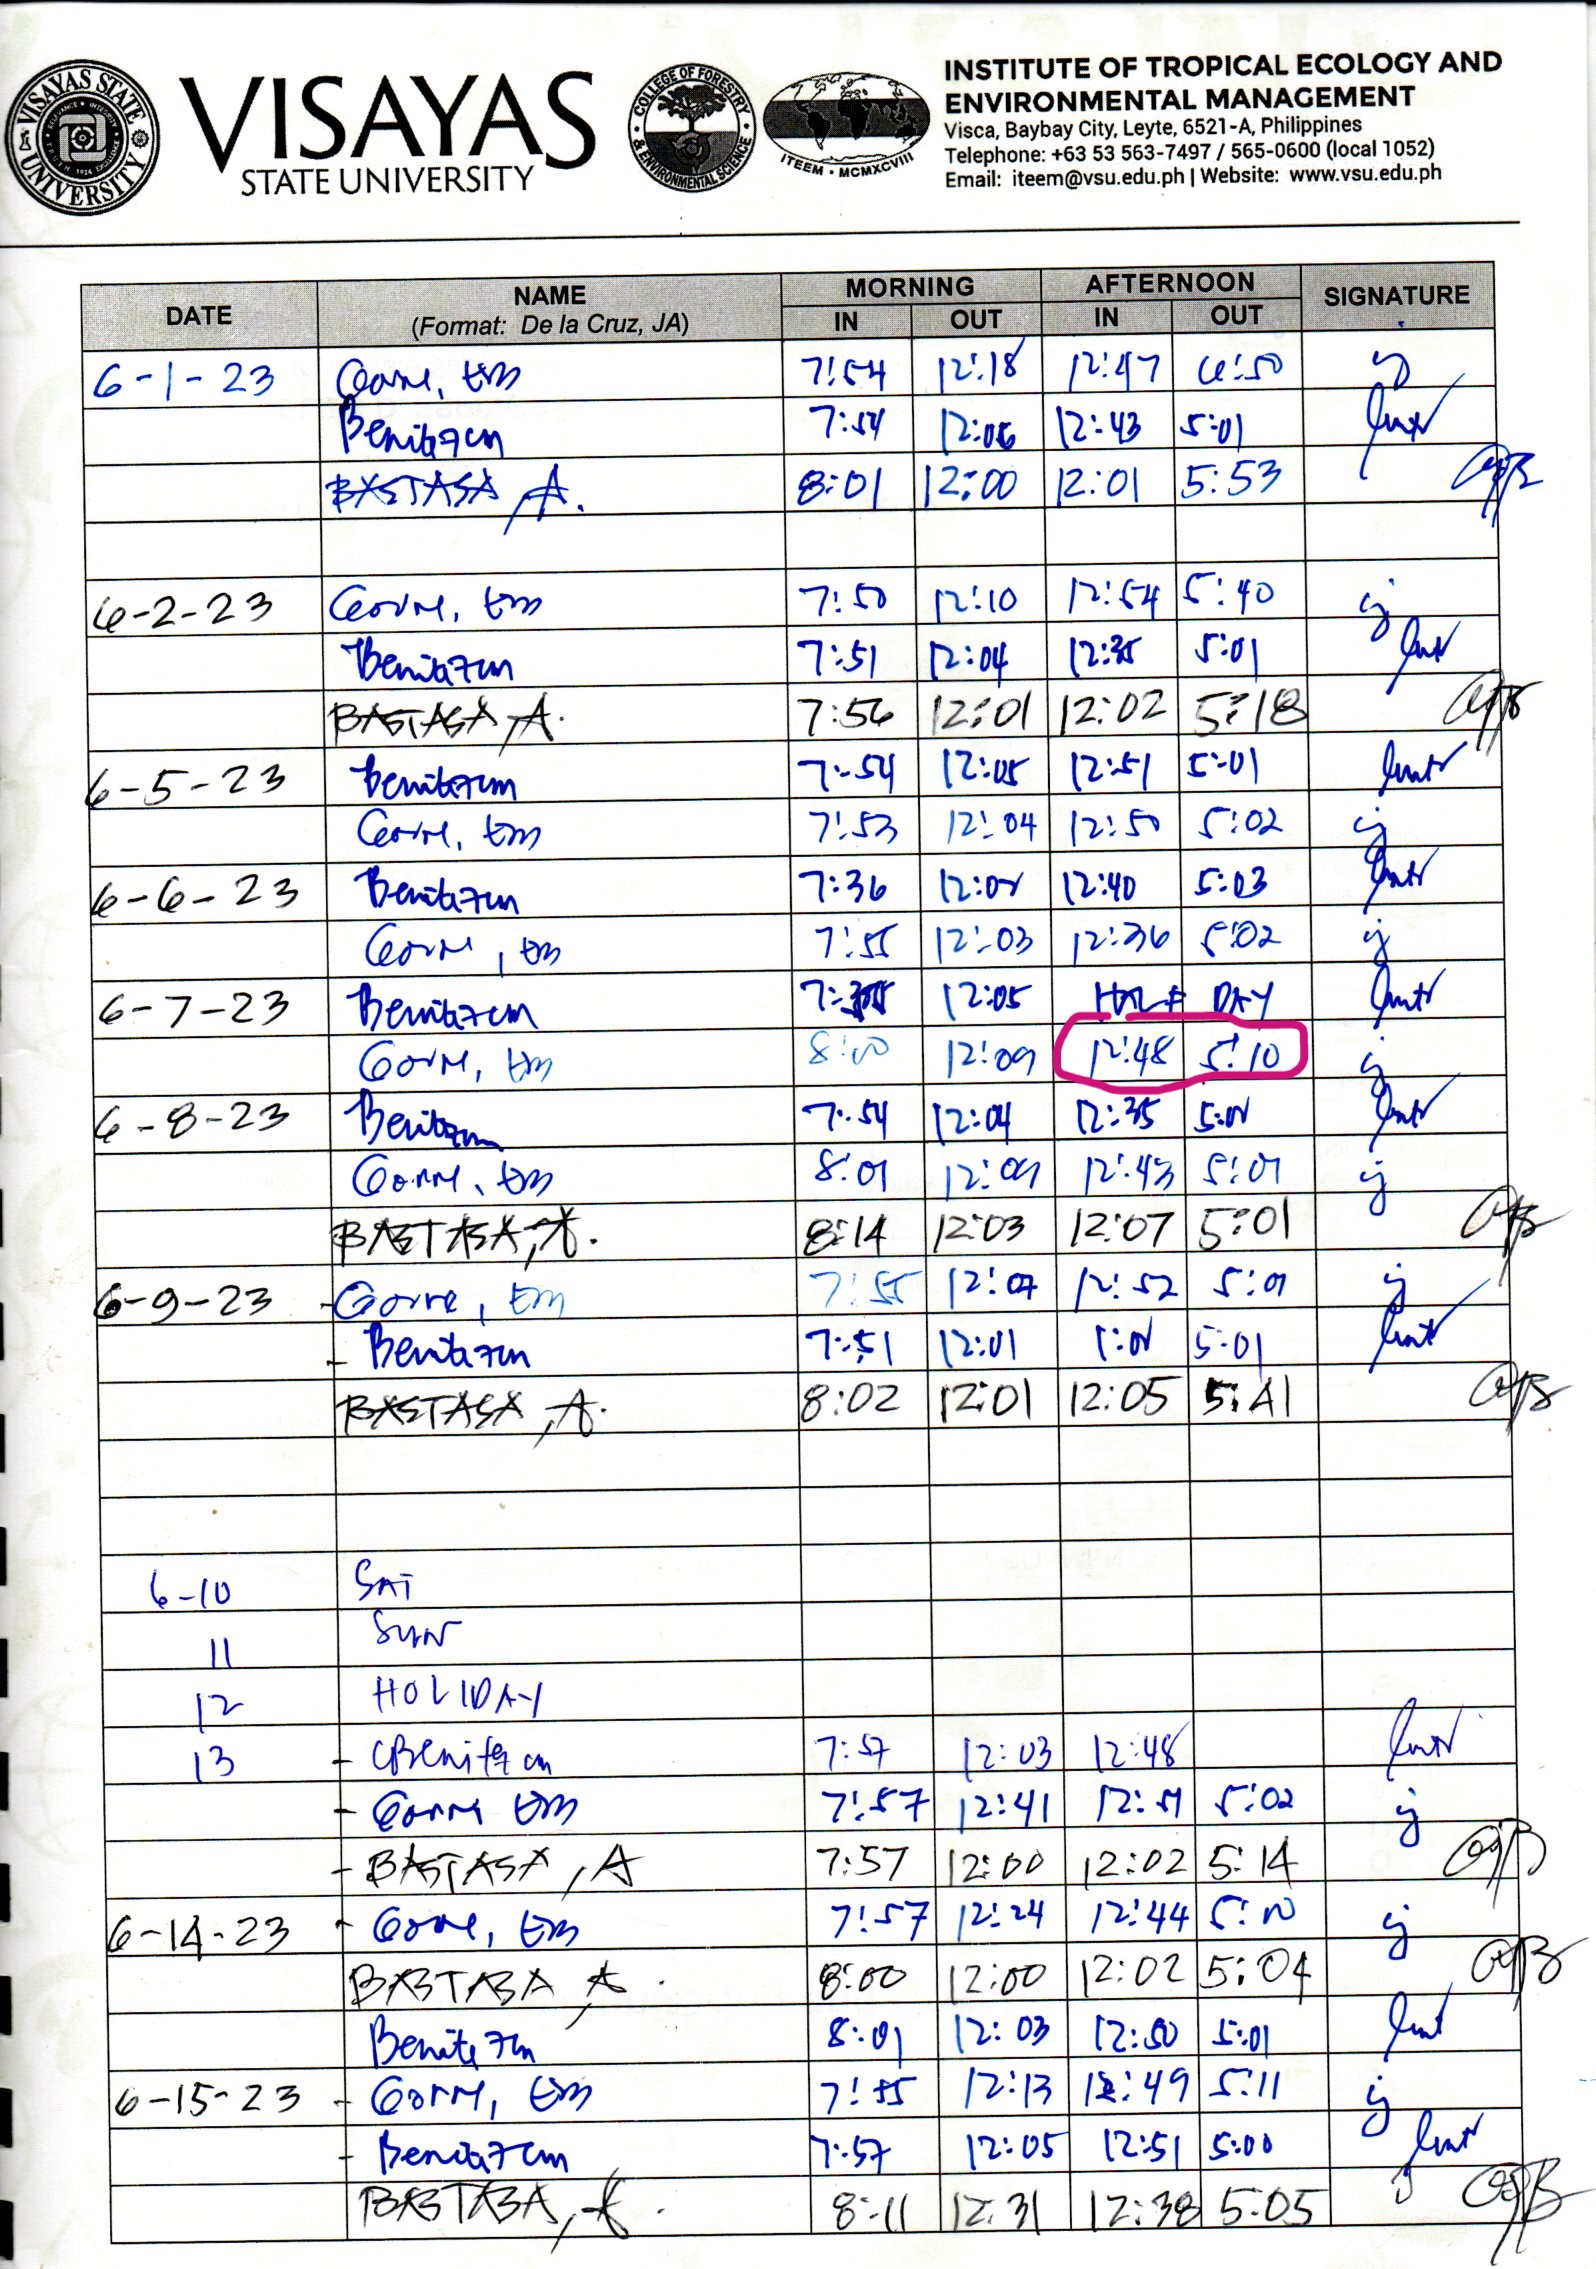 VISAYAS STATE UNIVERSITY
VISAYAS
STATE UNIVERSITY
COLLEGE OF FORESTRY & ENVIRONMENTAL SCIENCE
ITEEM • MCMXCVIII
INSTITUTE OF TROPICAL ECOLOGY AND
ENVIRONMENTAL MANAGEMENT
Visca, Baybay City, Leyte, 6521-A, Philippines
Telephone: +63 53 563-7497 / 565-0600 (local 1052)
Email: iteem@vsu.edu.ph | Website: www.vsu.edu.ph
DATE NAME MORNING AFTERNOON SIGNATURE
(Format: De la Cruz, JA) IN OUT IN OUT
6-1-23 Gorre, EM 7:54 12:18 12:47
7:54 12:06 12:43 5:01
BASTASA, A. 8:01 12:00 12:01 5:53
6-2-23 Gorre, EM 7:50 12:10 12:54 5:40
7:51 12:04 12:35 5:01
BASTASA, A. 7:56 12:01 12:02 5:18
6-5-23 7:54 12:05 12:51 5:01
Gorre, EM 7:53 12:04 12:50 5:02
6-6-23 7:36 12:40 5:03
Gorre, EM 7:55 12:03 12:36 5:02
6-7-23 12:05 HALF DAY
Gorre, EM 8:00 12:09 12:48 5:10
6-8-23 7:54 12:04 12:35
Gorre, EM 8:01 12:09 12:43 5:01
BASTASA, A. 8:14 12:03 12:07 5:01
6-9-23 - Gorre, EM 7:55 12:07 12:52 5:01
- 7:51 12:01 5:01
BASTASA, A. 8:02 12:01 12:05 5:41
6-10 SAT
11 SUN
12 HOLIDAY
13 - 7:57 12:03 12:48
- Gorre EM 7:57 12:41 12:51 5:02
- BASTASA, A 7:57 12:00 12:02 5:14
6-14-23 - Gorre, EM 7:57 12:24 12:44 5:10
BASTASA, A. 8:00 12:00 12:02 5:04
8:01 12:03 12:50 5:01
6-15-23 - Gorre, EM 7:55 12:13 12:49 5:11
- 7:57 12:05 12:51 5:00
BASTASA, A. 8:11 12:31 12:38 5:05